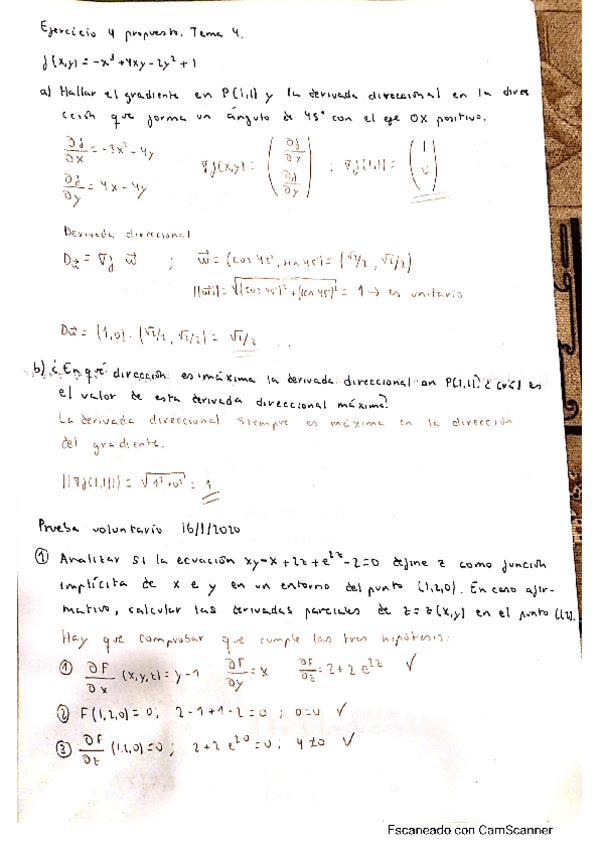 Ejercicio 4 propuesto. Tema 4.
f(x,y) = -x³ + 4xy - 2y² + 1
a) Hallar el gradiente en P(1,1) y la derivada direccional en la dire
cción que forma un ángulo de 45° con el eje OX positivo.
∂f/∂x = -3x² + 4y
∂f/∂y = 4x - 4y
∇f(x,y) = (∂f/∂x ∂f/∂y) ; ∇f(1,1) = (1 0)
Derivada direccional
Dū = ∇f w⃗ ; w⃗ = (cos 45°, sen 45°) = (√2/2, √2/2)
||w⃗|| = √(cos 45°)² + (sen 45°)² = 1 → es unitario
Dū = (1,0) · (√2/2, √2/2) = √2/2
b) ¿En qué dirección es máxima la derivada direccional en P(1,1)? ¿cuál es
el valor de esta derivada direccional máxima?
La derivada direccional siempre es máxima en la dirección
del gradiente.
||∇f(1,1)|| = √1² + 0² = 1
Prueba voluntario 16/1/2020
① Analizar si la ecuación xy - x + 2z + e^2z - 2 = 0 define z como función
implícita de x e y en un entorno del punto (1,2,0). En caso afir-
mativo, calcular las derivadas parciales de z = z(x,y) en el punto (1,2).
Hay que comprobar que cumple las tres hipótesis:
① ∂F/∂x (x,y,z) = y - 1 ∂F/∂y = x ∂F/∂z = 2 + 2e^2z ✓
② F(1,2,0) = 0; 2 - 1 + 1 - 2 = 0 ; 0 = 0 ✓
③ ∂F/∂z (1,2,0) = 0; 2 + 2e^2·0 = 0; 4 ≠ 0 ✓
Escaneado con CamScanner